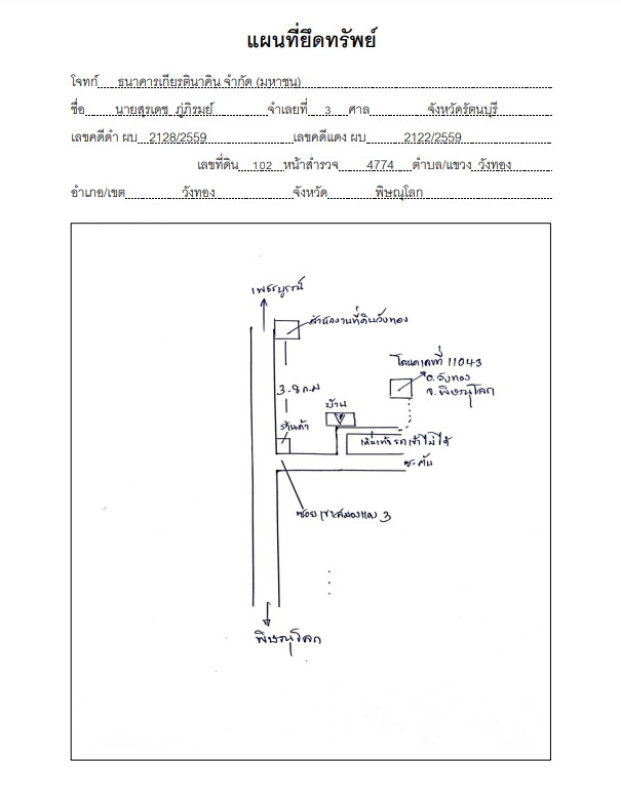 แผนที่ยึดทรัพย์
โจทก์ ธนาคารเกียรตินาคิน จำกัด (มหาชน)
ชื่อ นายสุรเดช ภู่ภิรมย์ จำเลยที่ 3 ศาล จังหวัดรัตนบุรี
เลขคดีดำ ผบ 2128/2559 เลขคดีแดง ผบ 2122/2559
เลขที่ดิน 102 หน้าสำรวจ 4774 ตำบล/แขวง วังทอง
อำเภอ/เขต วังทอง จังหวัด พิษณุโลก
เพชรบูรณ์
สำนักงานที่ดินวังทอง
โฉนดเลขที่ 11043
อ. วังทอง
จ. พิษณุโลก
3-8 ก.ม
บ้าน
ร้านค้า
รถเข้าไม่ได้
ซอย เขาสมอแคลง 3
พิษณุโลก